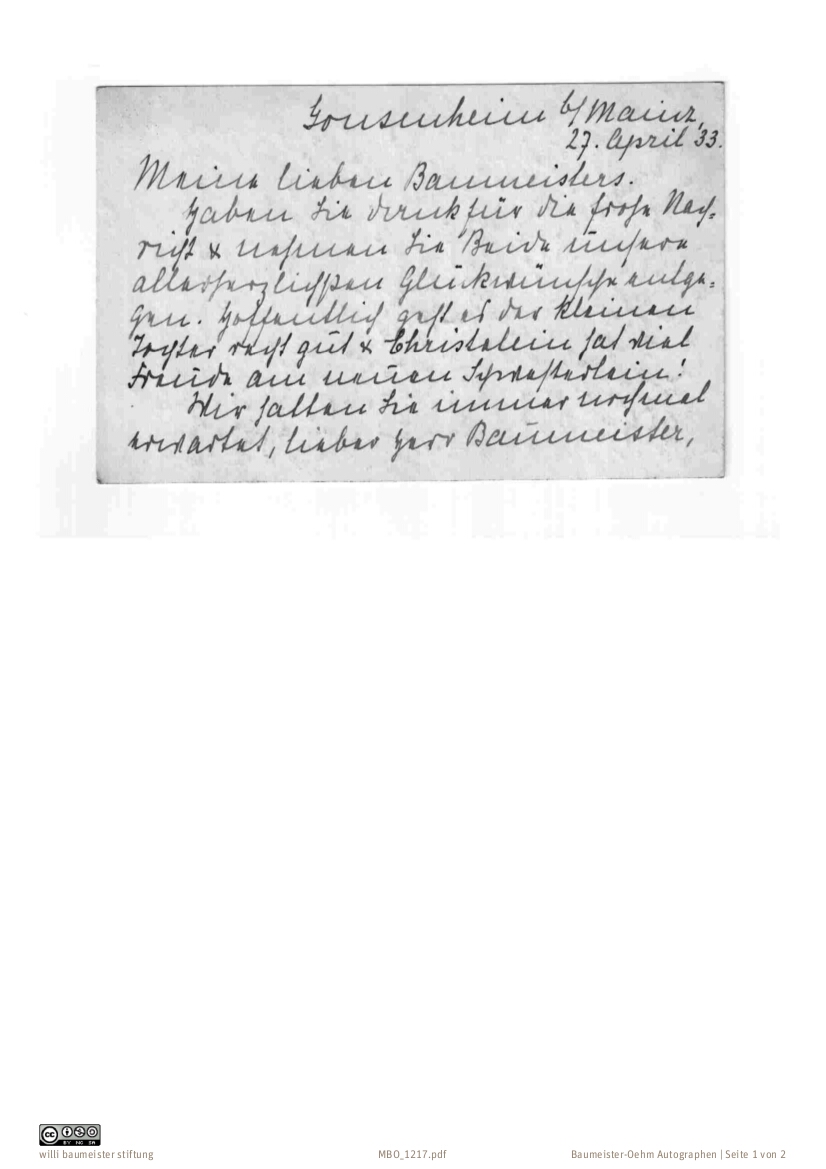 Gonsenheim b/Mainz,
27. April 33.
Meine lieben Baumeisters.
Haben Sie dank für die frohe Nach-
richt & nehmen Sie Beide unsere
allerherzlichsten Glückwünsche entge-
gen. Hoffentlich geht es der kleinen
Tochter recht gut & Christelein hat viel
Freude am neuen Schwesterlein!
Wir hatten Sie immer nochmal
erwartet, lieber Herr Baumeister,
CC BY NC SA
willi baumeister stiftung
MBO_1217.pdf
Baumeister-Oehm Autographen | Seite 1 von 2